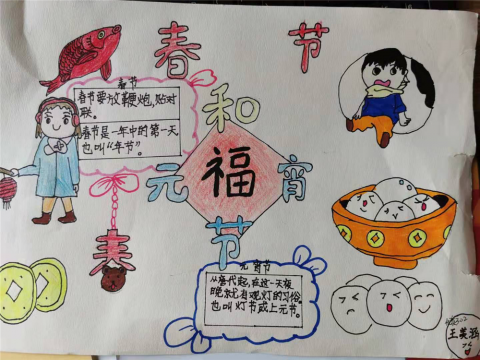 春 节
和
元 福 宵
节
春
春节
春节要放鞭炮，贴对
联。
春节是一年中的第一天
也叫“年节”。
元宵节
从唐代起，在这一天夜
晚就有观灯的习俗
也叫灯节或上元节。
王美涵